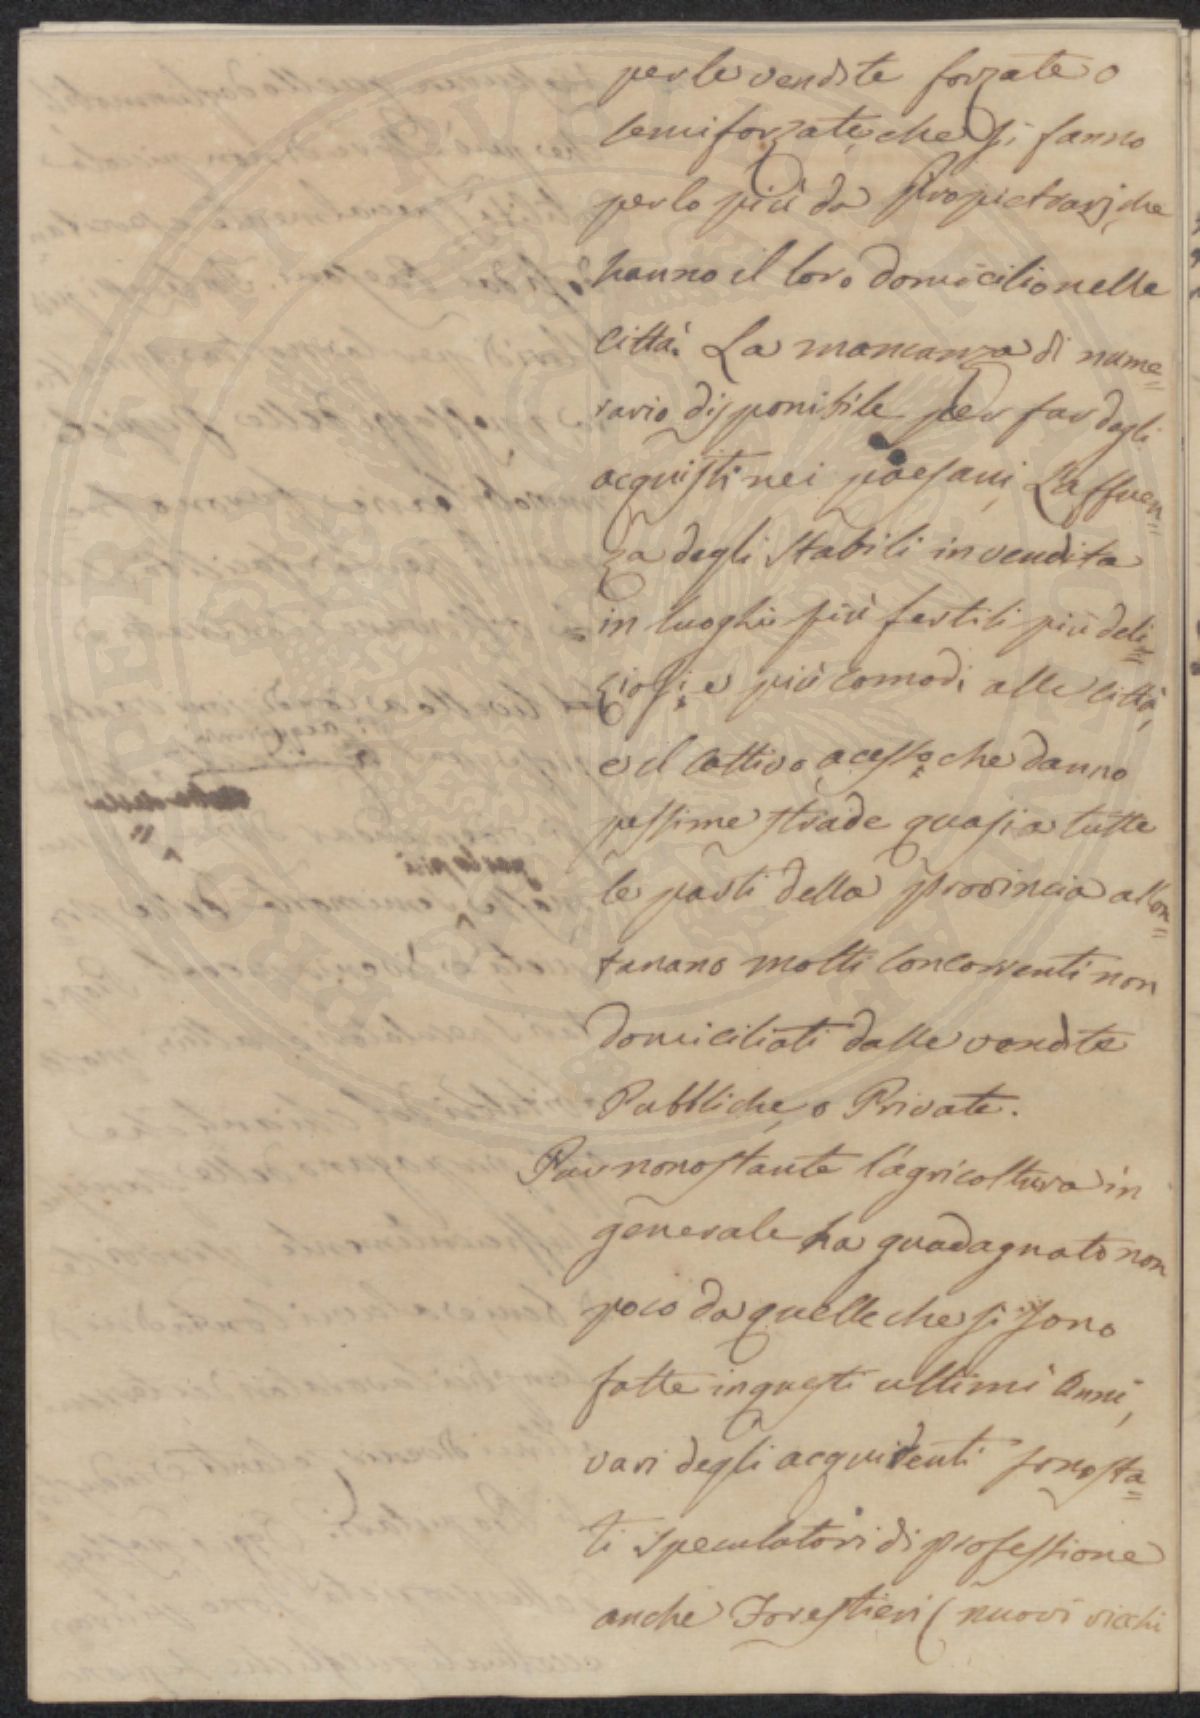 per le vendite forzate o
semiforzate, che si fanno
per lo più da Propietarj, che
hanno il loro domicilio nelle
Città. La mancanza di nume=
rario disponibile per far degli
acquisti nei paesani, L'affluen=
za degli Stabili in vendita
in luoghi più fertili più deli=
ziosi, e più comodi alle città,
e il cattivo acesso che danno
pessime strade quasi a tutte
le parti della provincia allon=
tanano molti Concorrenti non
domiciliati dalle vendite
Pubbliche, o Private.
Pur nonostante l'agricoltura in
generale ha guadagnato non
poco da quelle che si sono
fatte in questi ultimi Anni,
vari degli acquirenti sono sta=
ti speculatori di professione
anche Forestieri (nuovi ricchi